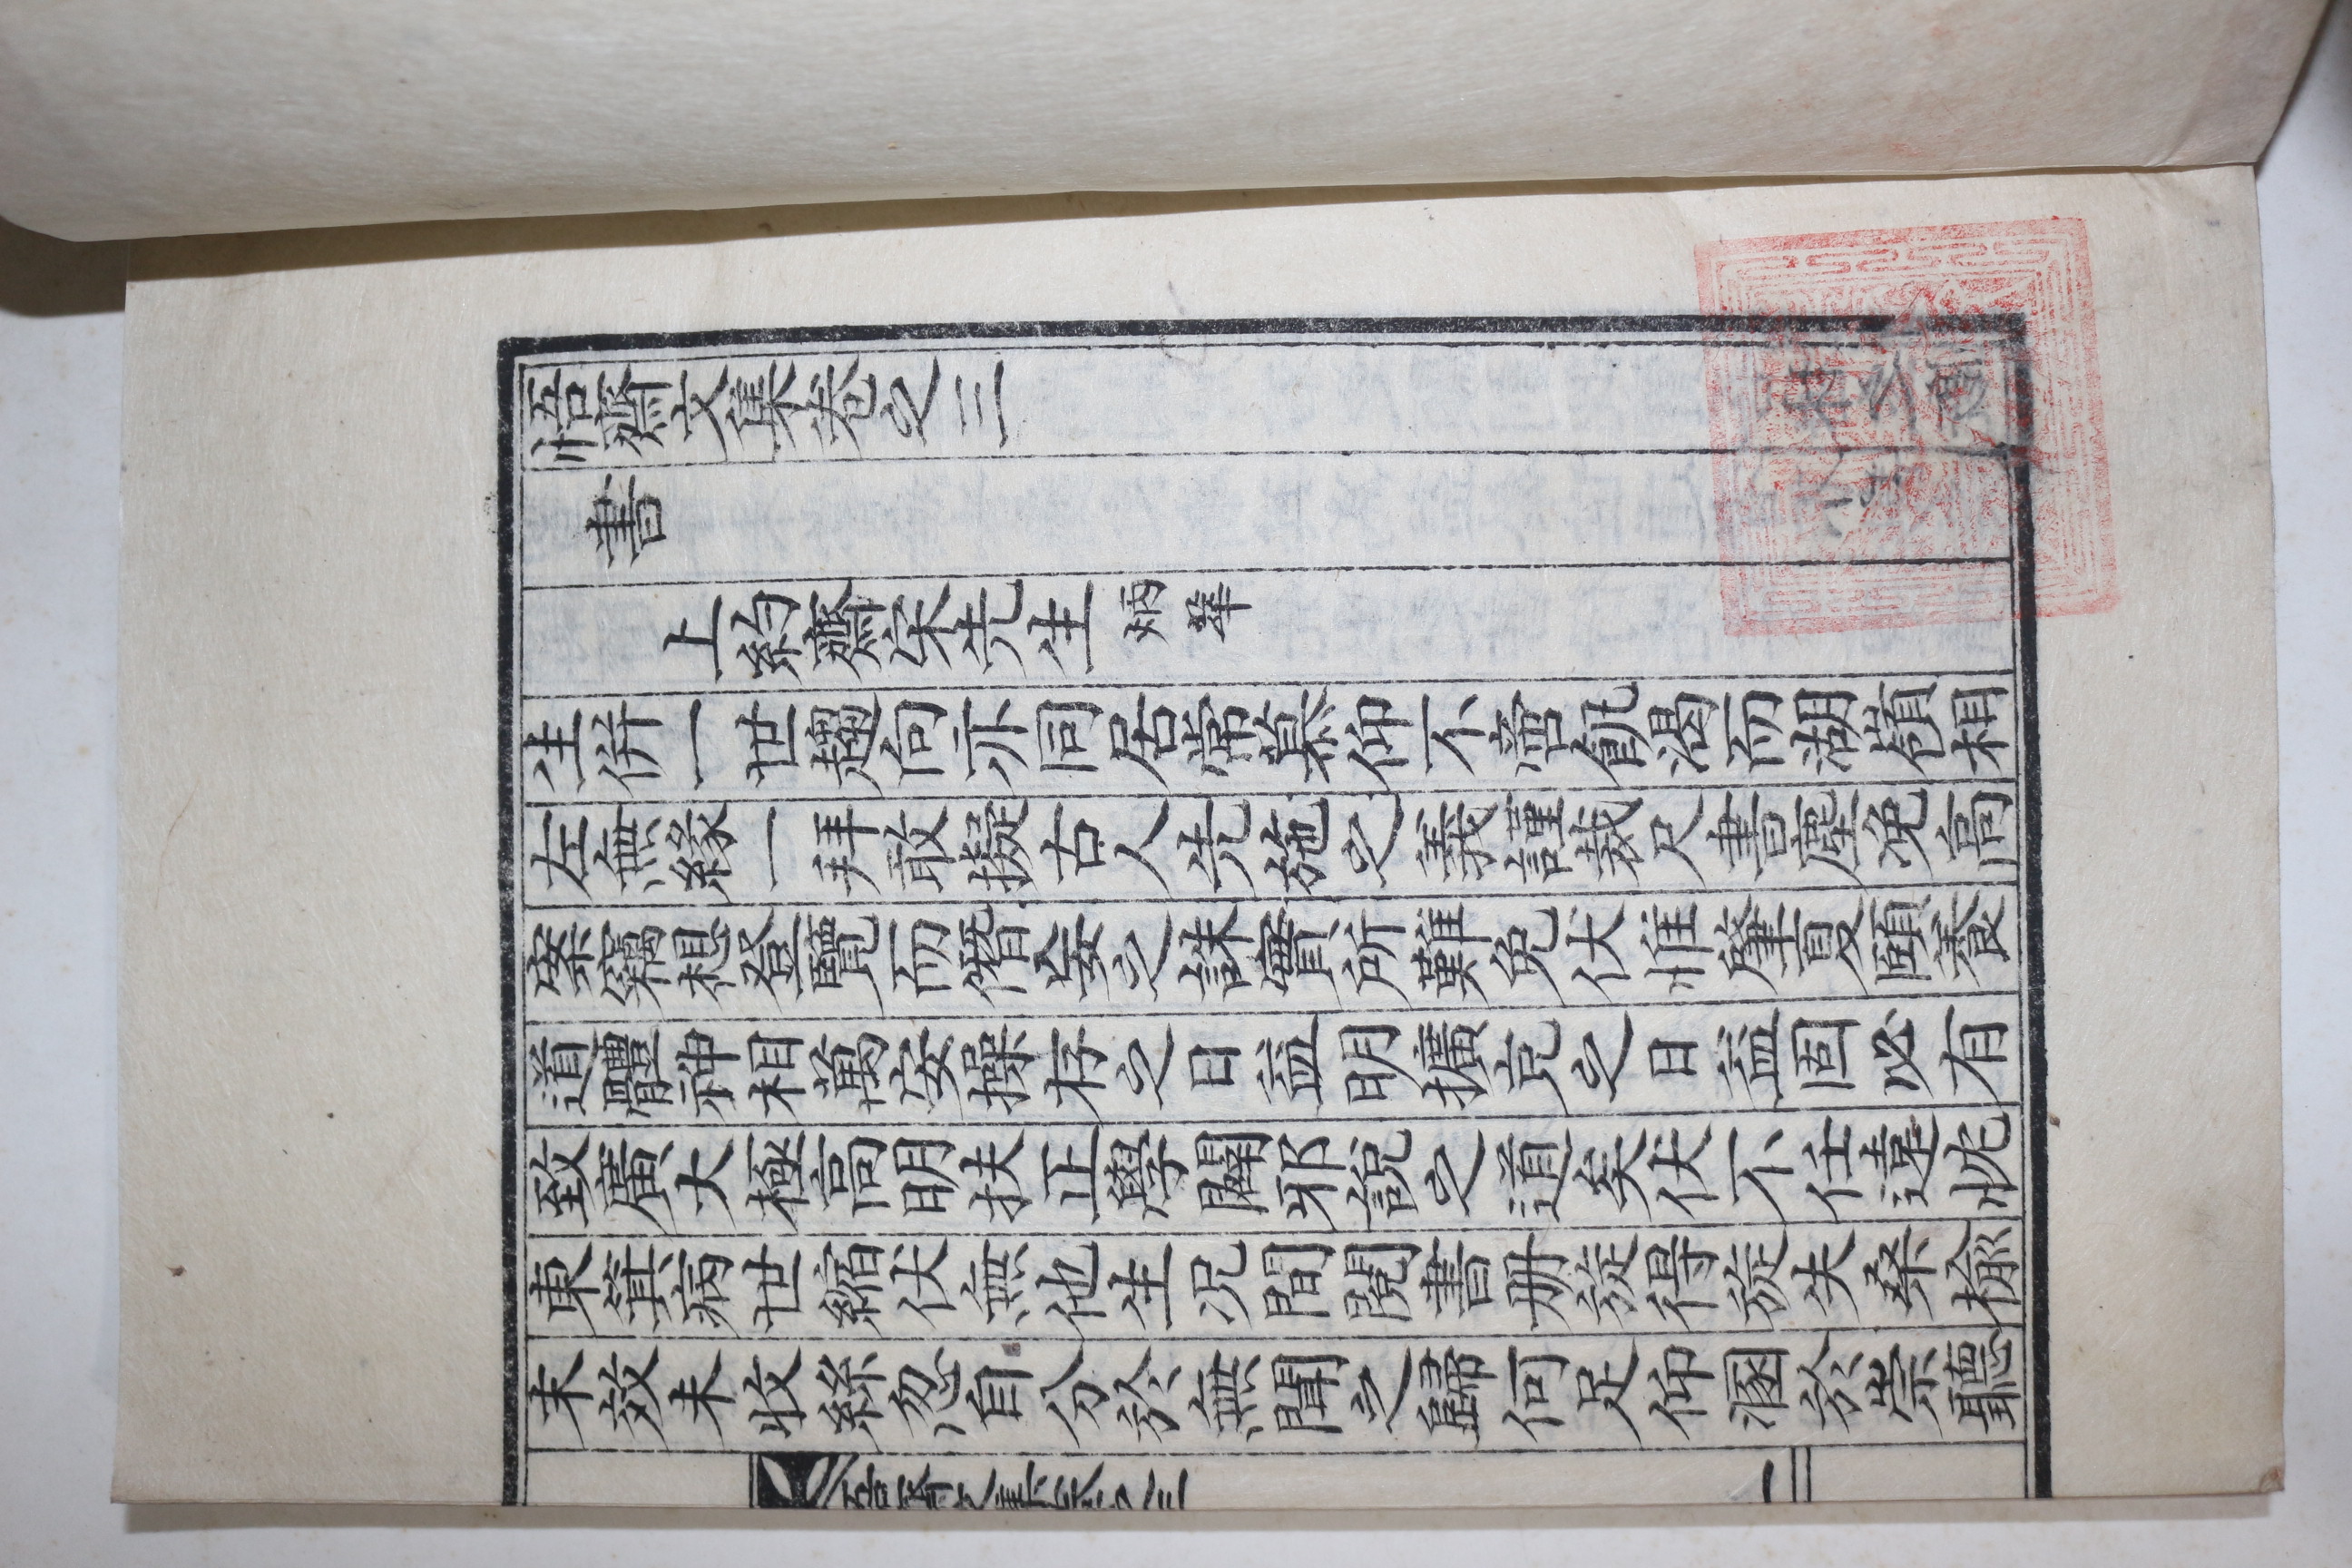 悟齋文集卷之三
書
上約齋宋先生 炳華
生併一世趨向亦同居常慕仰不啻飢渴而湖嶺相
左無緣一拜敢擬古人先施之義謹裁尺書塵浼高
案竊想登覽而僭妄之誅實所難免伏惟肇夏頤養
道體神相萬安操存之日益明擴克之日益固必有
致廣大極高明扶正學闢邪說之道矣伏不任遠忱
東箕病世縮伏無他生况間閱書册旋得旋失桑榆
末效未收絲忽自分於無聞之歸何足仰溷於崇聽